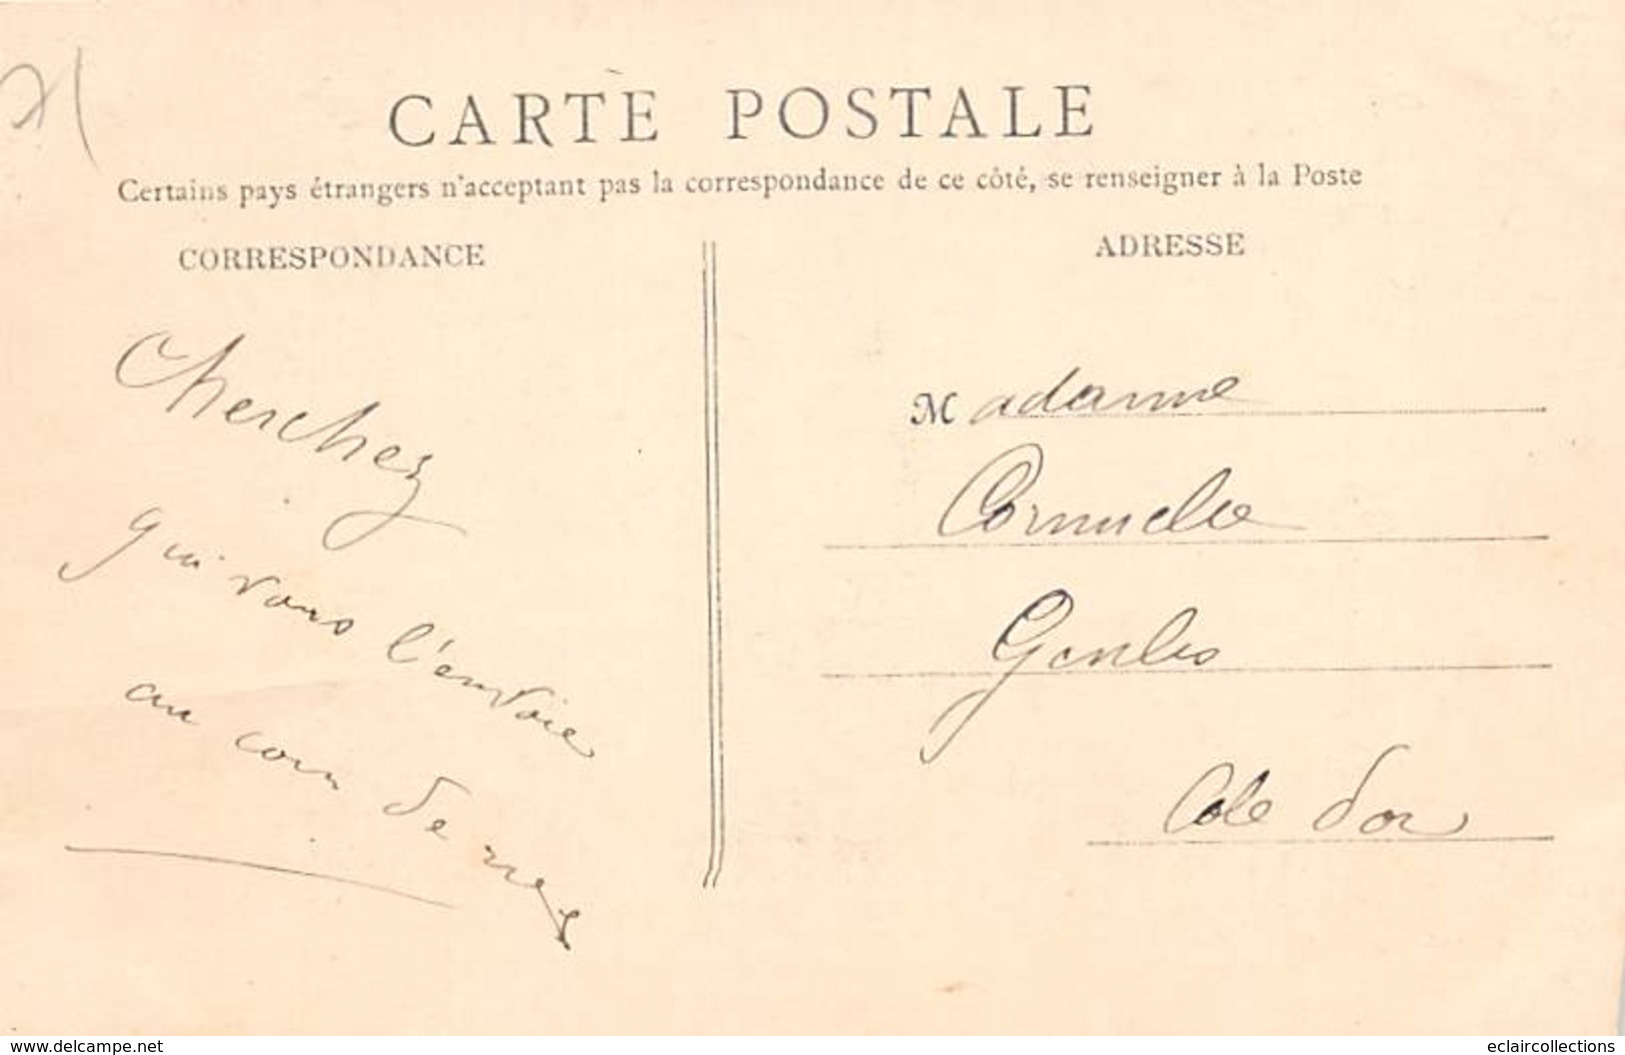 CARTE POSTALE
Certains pays étrangers n'acceptant pas la correspondance de ce côté, se renseigner à la Poste
CORRESPONDANCE
ADRESSE
Cherchez
qui vous l'envoie
au coin de
Madame
Genlis
Cote d'or
www.delcampe.net
eclaircollections